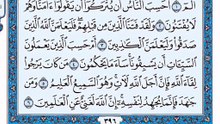 الٓمٓ ١ أَحَسِبَ ٱلنَّاسُ أَن يُتْرَكُوٓا۟ أَن يَقُولُوٓا۟ ءَامَنَّا وَهُمْ
لَا يُفْتَنُونَ ٢ وَلَقَدْ فَتَنَّا ٱلَّذِينَ مِن قَبْلِهِمْ فَلَيَعْلَمَنَّ ٱللَّهُ ٱلَّذِينَ
صَدَقُوا۟ وَلَيَعْلَمَنَّ ٱلْكَٰذِبِينَ ٣ أَمْ حَسِبَ ٱلَّذِينَ يَعْمَلُونَ
ٱلسَّيِّـَٔاتِ أَن يَسْبِقُونَا سَآءَ مَا يَحْكُمُونَ ٤ مَن كَانَ يَرْجُوا۟
لِقَآءَ ٱللَّهِ فَإِنَّ أَجَلَ ٱللَّهِ لَـَٔاتٍ وَهُوَ ٱلسَّمِيعُ ٱلْعَلِيمُ ٥ وَمَن
جَٰهَدَ فَإِنَّمَا يُجَٰهِدُ لِنَفْسِهِۦٓ إِنَّ ٱللَّهَ لَغَنِىٌّ عَنِ ٱلْعَٰلَمِينَ ٦
٣٩٦